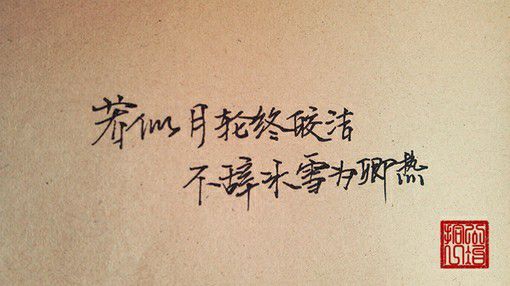 若似月轮终皎洁
不辞冰雪为卿热